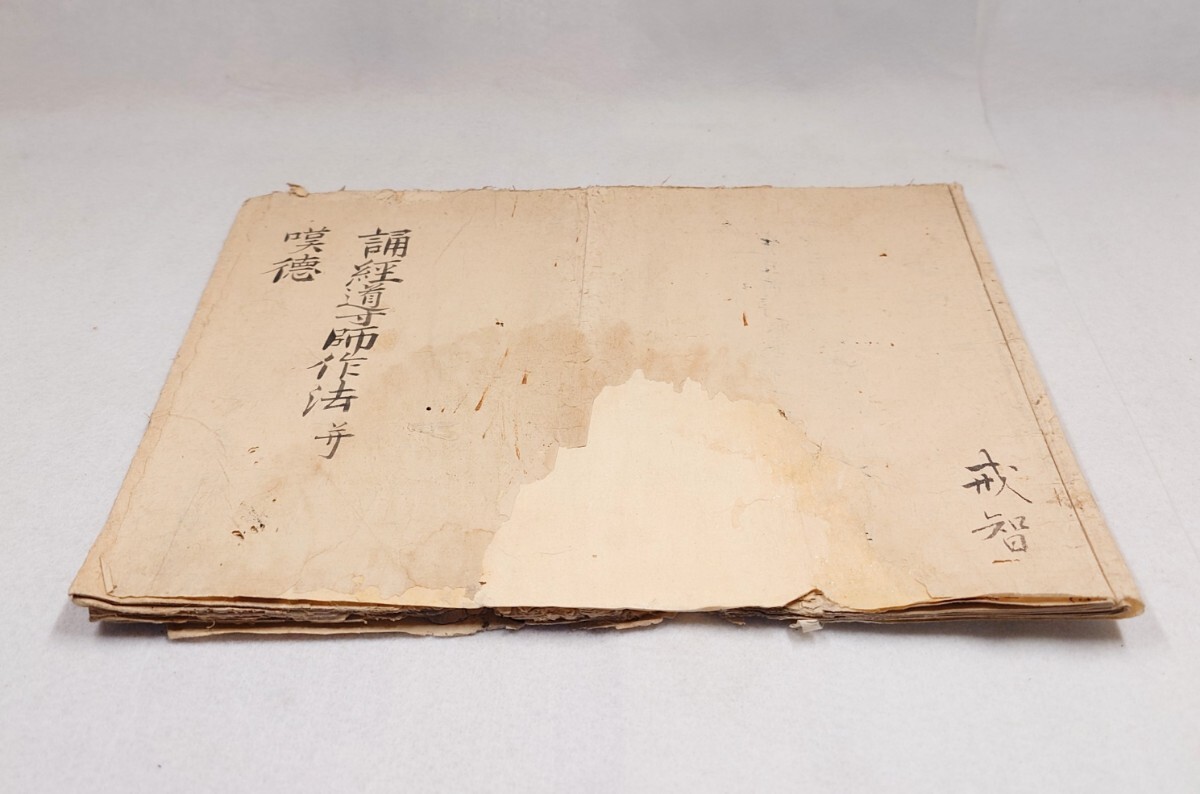 誦經導師作法并
嘆德
戒智